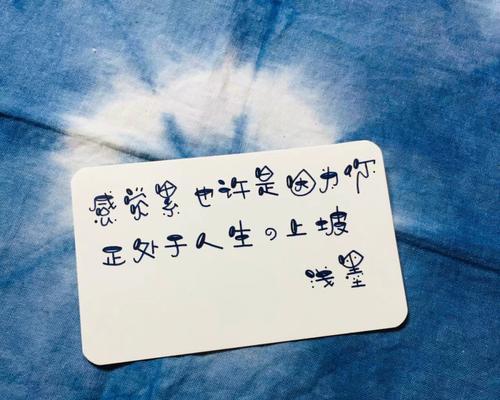 感觉累 也许是因为你
正处于人生の上坡
浅墨